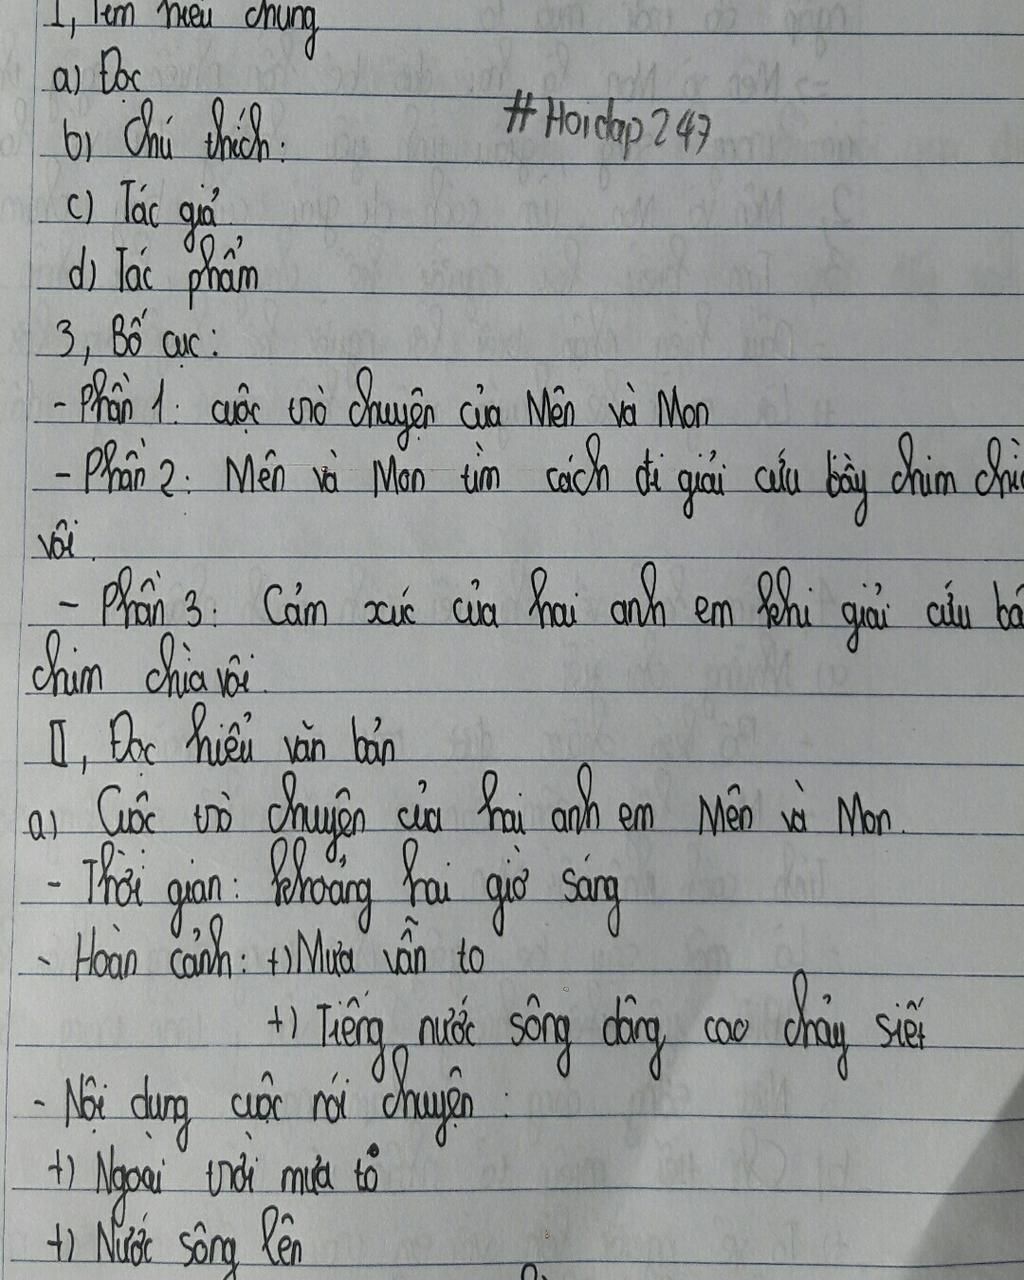 I, Tìm hiểu chung
a) Đọc
#Hoidap247
b) Chú thích:
c) Tác giả
d) Tác phẩm
3, Bố cục:
- Phần 1: cuộc trò chuyện của Mên và Mon
- Phần 2: Mên và Mon tìm cách đi giải cứu bầy chim chì
vôi.
- Phần 3: Cảm xúc của hai anh em khi giải cứu bầ
chim chìa vôi.
II, Đọc hiểu văn bản
a) Cuộc trò chuyện của hai anh em Mên và Mon.
- Thời gian: khoảng hai giờ sáng
- Hoàn cảnh: +) Mưa vẫn to
+) Tiếng nước sông dâng cao chảy siết
- Nội dung cuộc nói chuyện:
+) Ngoài trời mưa tô
+) Nước sông lên